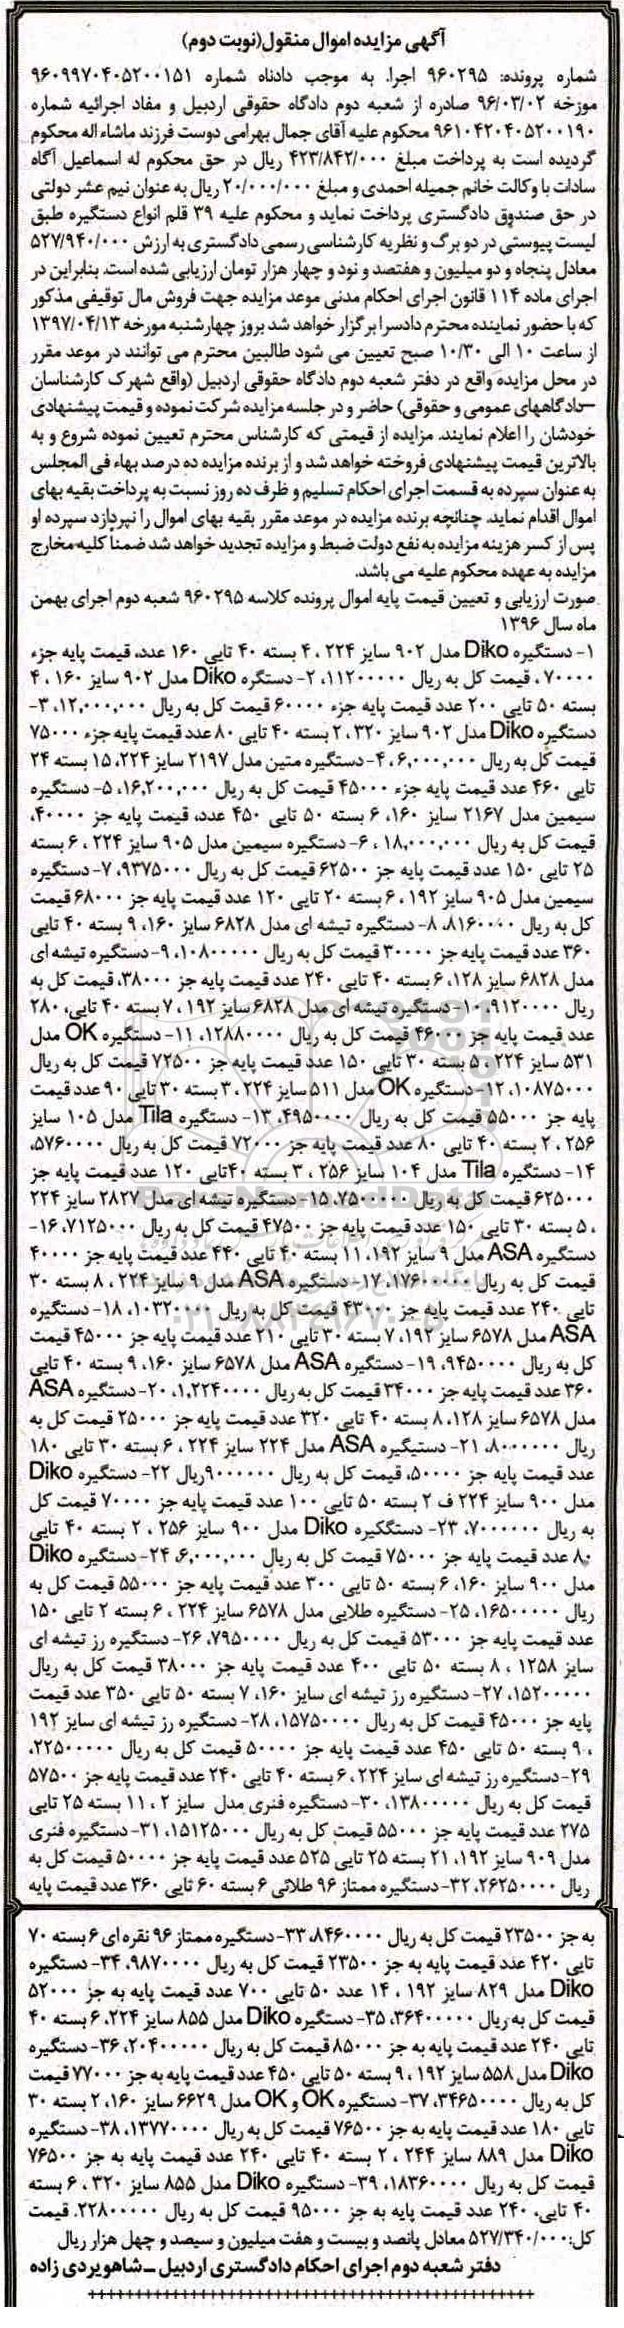 آگهی مزایده اموال منقول(نوبت دوم)
شماره پرونده: ۹۶۰۲۹۵ اجرا. به موجب دادنامه شماره ۹۶۰۹۹۷۰۴۰۵۲۰۰۱۵۱
مورخه ۹۶/۰۳/۰۲ صادره از شعبه دوم دادگاه حقوقی اردبیل و مفاد اجرائیه شماره
۹۶۱۰۴۲۰۴۰۵۲۰۰۱۹۰ محکوم علیه آقای جمال بهرامی دوست فرزند ماشاءاله محکوم
گردیده است به پرداخت مبلغ ۴۲۳/۸۴۲/۰۰۰ ریال در حق محکوم له اسماعیل آگاه
سادات با وکالت خانم جمیله احمدی و مبلغ ۲۰/۰۰۰/۰۰۰ ریال به عنوان نیم عشر دولتی
در حق صندوق دادگستری پرداخت نماید و محکوم علیه ۳۹ قلم انواع دستگیره طبق
لیست پیوستی در دو برگ و نظریه کارشناسی رسمی دادگستری به ارزش ۵۲۷/۹۴۰/۰۰۰
معادل پنجاه و دو میلیون و هفتصد و نود و چهار هزار تومان ارزیابی شده است. بنابراین در
اجرای ماده ۱۱۴ قانون اجرای احکام مدنی موعد مزایده جهت فروش مال توقیفی مذکور
که با حضور نماینده محترم دادسرا برگزار خواهد شد بروز چهارشنبه مورخه ۱۳۹۷/۰۴/۱۳
از ساعت ۱۰ الی ۱۰/۳۰ صبح تعیین می شود طالبین محترم می توانند در موعد مقرر
در محل مزایده واقع در دفتر شعبه دوم دادگاه حقوقی اردبیل (واقع شهرک کارشناسان
-دادگاههای عمومی و حقوقی) حاضر و در جلسه مزایده شرکت نموده و قیمت پیشنهادی
خودشان را اعلام نمایند. مزایده از قیمتی که کارشناس محترم تعیین نموده شروع و به
بالاترین قیمت پیشنهادی فروخته خواهد شد و از برنده مزایده ده درصد بهاء فی المجلس
به عنوان سپرده به قسمت اجرای احکام تسلیم و ظرف ده روز نسبت به پرداخت بقیه بهای
اموال اقدام نماید. چنانچه برنده مزایده در موعد مقرر بقیه بهای اموال را نپردازد سپرده او
پس از کسر هزینه مزایده به نفع دولت ضبط و مزایده تجدید خواهد شد ضمنا کلیه مخارج
مزایده به عهده محکوم علیه می باشد.
صورت ارزیابی و تعیین قیمت پایه اموال پرونده کلاسه ۹۶۰۲۹۵ شعبه دوم اجرای بهمن
ماه سال ۱۳۹۶
۱- دستگیره Diko مدل ۹۰۲ سایز ۲۲۴ ، ۴ بسته ۴۰ تایی ۱۶۰ عدد، قیمت پایه جزء
۷۰۰۰۰ ، قیمت کل به ریال ۱۱۲۰۰۰۰۰، ۲- دستگره Diko مدل ۹۰۲ سایز ۱۶۰ ، ۴
بسته ۵۰ تایی ۲۰۰ عدد قیمت پایه جزء ۶۰۰۰۰ قیمت کل به ریال ۱۲,۰۰۰,۰۰۰، ۳-
دستگیره Diko مدل ۹۰۲ سایز ۳۲۰ ، ۲ بسته ۴۰ تایی ۸۰ عدد قیمت پایه جزء ۷۵۰۰۰
قیمت کل به ریال ۶,۰۰۰,۰۰۰ ، ۴- دستگیره متین مدل ۲۱۹۷ سایز ۲۲۴، ۱۵ بسته ۲۴
تایی ۴۶۰ عدد قیمت پایه جزء ۴۵۰۰۰ قیمت کل به ریال ۱۶,۲۰۰,۰۰۰، ۵- دستگیره
سیمین مدل ۲۱۶۷ سایز ۱۶۰، ۶ بسته ۵۰ تایی ۴۵۰ عدد، قیمت پایه جز ۴۰۰۰۰،
قیمت کل به ریال ۱۸,۰۰۰,۰۰۰ ، ۶- دستگیره سیمین مدل ۹۰۵ سایز ۲۲۴ ، ۶ بسته
۲۵ تایی ۱۵۰ عدد قیمت پایه جز ۶۲۵۰۰ قیمت کل به ریال ۹۳۷۵۰۰۰، ۷- دستگیره
سیمین مدل ۹۰۵ سایز ۱۹۲ ، ۶ بسته ۲۰ تایی ۱۲۰ عدد قیمت پایه جز ۶۸۰۰۰ قیمت
کل به ریال ۸۱۶۰۰۰۰، ۸- دستگیره تیشه ای مدل ۶۸۲۸ سایز ۱۶۰، ۹ بسته ۴۰ تایی
۳۶۰ عدد قیمت پایه جز ۳۰۰۰۰ قیمت کل به ریال ۱۰۸۰۰۰۰۰، ۹- دستگیره تیشه ای
مدل ۶۸۲۸ سایز ۱۲۸، ۶ بسته ۴۰ تایی ۲۴۰ عدد قیمت پایه جز ۳۸۰۰۰، قیمت کل به
ریال ۹۱۲۰۰۰۰، ۱۰- دستگیره تیشه ای مدل ۶۸۲۸ سایز ۱۹۲ ، ۷ بسته ۴۰ تایی، ۲۸۰
عدد قیمت پایه جز ۴۶۰۰۰ قیمت کل به ریال ۱۲۸۸۰۰۰۰، ۱۱- دستگیره OK مدل
۵۳۱ سایز ۲۲۴، ۵ بسته ۳۰ تایی ۱۵۰ عدد قیمت پایه جز ۷۲۵۰۰ قیمت کل به ریال
۱۰۸۷۵۰۰۰، ۱۲- دستگیره OK مدل ۵۱۱ سایز ۲۲۴، ۳ بسته ۳۰ تایی ۹۰ عدد قیمت
پایه جز ۵۵۰۰۰ قیمت کل به ریال ۴۹۵۰۰۰۰، ۱۳- دستگیره Tila مدل ۱۰۵ سایز
۲۵۶ ، ۲ بسته ۴۰ تایی ۸۰ عدد قیمت پایه جز ۷۲۰۰۰ قیمت کل به ریال ۵۷۶۰۰۰۰،
۱۴- دستگیره Tila مدل ۱۰۴ سایز ۲۵۶ ، ۳ بسته ۴۰تایی ۱۲۰ عدد قیمت پایه جز
۶۲۵۰۰۰ قیمت کل به ریال ۷۵۰۰۰۰۰، ۱۵- دستگیره تیشه ای مدل ۲۸۲۷ سایز ۲۲۴
، ۵ بسته ۳۰ تایی ۱۵۰ عدد قیمت پایه جز ۴۷۵۰۰ قیمت کل به ریال ۷۱۲۵۰۰۰، ۱۶-
دستگیره ASA مدل ۹ سایز ۱۹۲، ۱۱ بسته ۴۰ تایی ۴۴۰ عدد قیمت پایه جز ۴۰۰۰۰
قیمت کل به ریال ۱۷۶۰۰۰۰۰، ۱۷- دستگیره ASA مدل ۹ سایز ۲۲۴ ، ۸ بسته ۳۰
تایی ۲۴۰ عدد قیمت پایه جز ۴۳۰۰۰ قیمت کل به ریال ۱۰۳۲۰۰۰۰، ۱۸- دستگیره
ASA مدل ۶۵۷۸ سایز ۱۹۲، ۷ بسته ۳۰ تایی ۲۱۰ عدد قیمت پایه جز ۴۵۰۰۰ قیمت
کل به ریال ۹۴۵۰۰۰۰، ۱۹- دستگیره ASA مدل ۶۵۷۸ سایز ۱۶۰، ۹ بسته ۴۰ تایی
۳۶۰ عدد قیمت پایه جز ۳۴۰۰۰ قیمت کل به ریال ۱,۲۲۴۰۰۰۰، ۲۰- دستگیره ASA
مدل ۶۵۷۸ سایز ۱۲۸، ۸ بسته ۴۰ تایی ۳۲۰ عدد قیمت پایه جز ۲۵۰۰۰ قیمت کل به
ریال ۸۰۰۰۰۰۰، ۲۱- دستیگیره ASA مدل ۲۲۴ سایز ۲۲۴ ، ۶ بسته ۳۰ تایی ۱۸۰
عدد قیمت پایه جز ۵۰۰۰۰، قیمت کل به ریال ۹۰۰۰۰۰۰ریال ۲۲- دستگیره Diko
مدل ۹۰۰ سایز ۲۲۴ ف ۲ بسته ۵۰ تایی ۱۰۰ عدد قیمت پایه جز ۷۰۰۰۰ قیمت کل
به ریال ۷۰۰۰۰۰۰، ۲۳- دستگکیره Diko مدل ۹۰۰ سایز ۲۵۶ ، ۲ بسته ۴۰ تایی
۸۰ عدد قیمت پایه جز ۷۵۰۰۰ قیمت کل به ریال ۶,۰۰۰,۰۰۰، ۲۴- دستگیره Diko
مدل ۹۰۰ سایز ۱۶۰، ۶ بسته ۵۰ تایی ۳۰۰ عدد قیمت پایه جز ۵۵۰۰۰ قیمت کل به
ریال ۱۶۵۰۰۰۰۰، ۲۵- دستگیره طلایی مدل ۶۵۷۸ سایز ۲۲۴ ، ۶ بسته ۲ تایی ۱۵۰
عدد قیمت پایه جز ۵۳۰۰۰ قیمت کل به ریال ۷۹۵۰۰۰۰، ۲۶- دستگیره رز تیشه ای
سایز ۱۲۵۸ ، ۸ بسته ۵۰ تایی ۴۰۰ عدد قیمت پایه جز ۳۸۰۰۰ قیمت کل به ریال
۱۵۲۰۰۰۰۰، ۲۷- دستگیره رز تیشه ای سایز ۱۶۰، ۷ بسته ۵۰ تایی ۳۵۰ عدد قیمت
پایه جز ۴۵۰۰۰ قیمت کل به ریال ۱۵۷۵۰۰۰۰، ۲۸- دستگیره رز تیشه ای سایز ۱۹۲
، ۹ بسته ۵۰ تایی ۴۵۰ عدد قیمت پایه جز ۵۰۰۰۰ قیمت کل به ریال ۲۲۵۰۰۰۰۰،
۲۹- دستگیره رز تیشه ای سایز ۲۲۴ ، ۶ بسته ۴۰ تایی ۲۴۰ عدد قیمت پایه جز ۵۷۵۰۰
قیمت کل به ریال ۱۳۸۰۰۰۰۰، ۳۰- دستگیره فنری مدل سایز ۲ ، ۱۱ بسته ۲۵ تایی
۲۷۵ عدد قیمت پایه جز ۵۵۰۰۰ قیمت کل به ریال ۱۵۱۲۵۰۰۰، ۳۱- دستگیره فنری
مدل ۹۰۹ سایز ۱۹۲، ۲۱ بسته ۲۵ تایی ۵۲۵ عدد قیمت پایه جز ۵۰۰۰۰ قیمت کل به
ریال ۲۶۲۵۰۰۰۰، ۳۲- دستگیره ممتاز ۹۶ طلائی ۶ بسته ۶۰ تایی ۳۶۰ عدد قیمت پایه
به جز ۲۳۵۰۰ قیمت کل به ریال ۸۴۶۰۰۰۰، ۳۳- دستگیره ممتاز ۹۶ نقره ای ۶ بسته ۷۰
تایی ۴۲۰ عدد قیمت پایه به جز ۲۳۵۰۰ قیمت کل به ریال ۹۸۷۰۰۰۰، ۳۴- دستگیره
Diko مدل ۸۲۹ سایز ۱۹۲ ، ۱۴ عدد ۵۰ تایی ۷۰۰ عدد قیمت پایه به جز ۵۲۰۰۰
قیمت کل به ریال ۳۶۴۰۰۰۰۰، ۳۵- دستگیره Diko مدل ۸۵۵ سایز ۲۲۴، ۶ بسته ۴۰
تایی ۲۴۰ عدد قیمت پایه به جز ۸۵۰۰۰ قیمت کل به ریال ۲۰۴۰۰۰۰۰، ۳۶- دستگیره
Diko مدل ۵۵۸ سایز ۱۹۲ ، ۹ بسته ۵۰ تایی ۴۵۰ عدد قیمت پایه به جز ۷۷۰۰۰ قیمت
کل به ریال ۳۴۶۵۰۰۰۰، ۳۷- دستگیره OK و OK مدل ۶۶۲۹ سایز ۱۶۰، ۲ بسته ۳۰
تایی ۱۸۰ عدد قیمت پایه به جز ۷۶۵۰۰ قیمت کل به ریال ۱۳۷۷۰۰۰۰، ۳۸- دستگیره
Diko مدل ۸۸۹ سایز ۲۴۴ ، ۲ بسته ۴۰ تایی ۲۴۰ عدد قیمت پایه به جز ۷۶۵۰۰
قیمت کل به ریال ۱۸۳۶۰۰۰۰، ۳۹- دستگیره Diko مدل ۸۵۵ سایز ۳۲۰ ، ۶ بسته
۴۰ تایی، ۲۴۰ عدد قیمت پایه به جز ۹۵۰۰۰ قیمت کل به ریال ۲۲۸۰۰۰۰۰. قیمت
کل: ۵۲۷/۳۴۰/۰۰۰ معادل پانصد و بیست و هفت میلیون و سیصد و چهل هزار ریال
دفتر شعبه دوم اجرای احکام دادگستری اردبیل - شاهویردی زاده